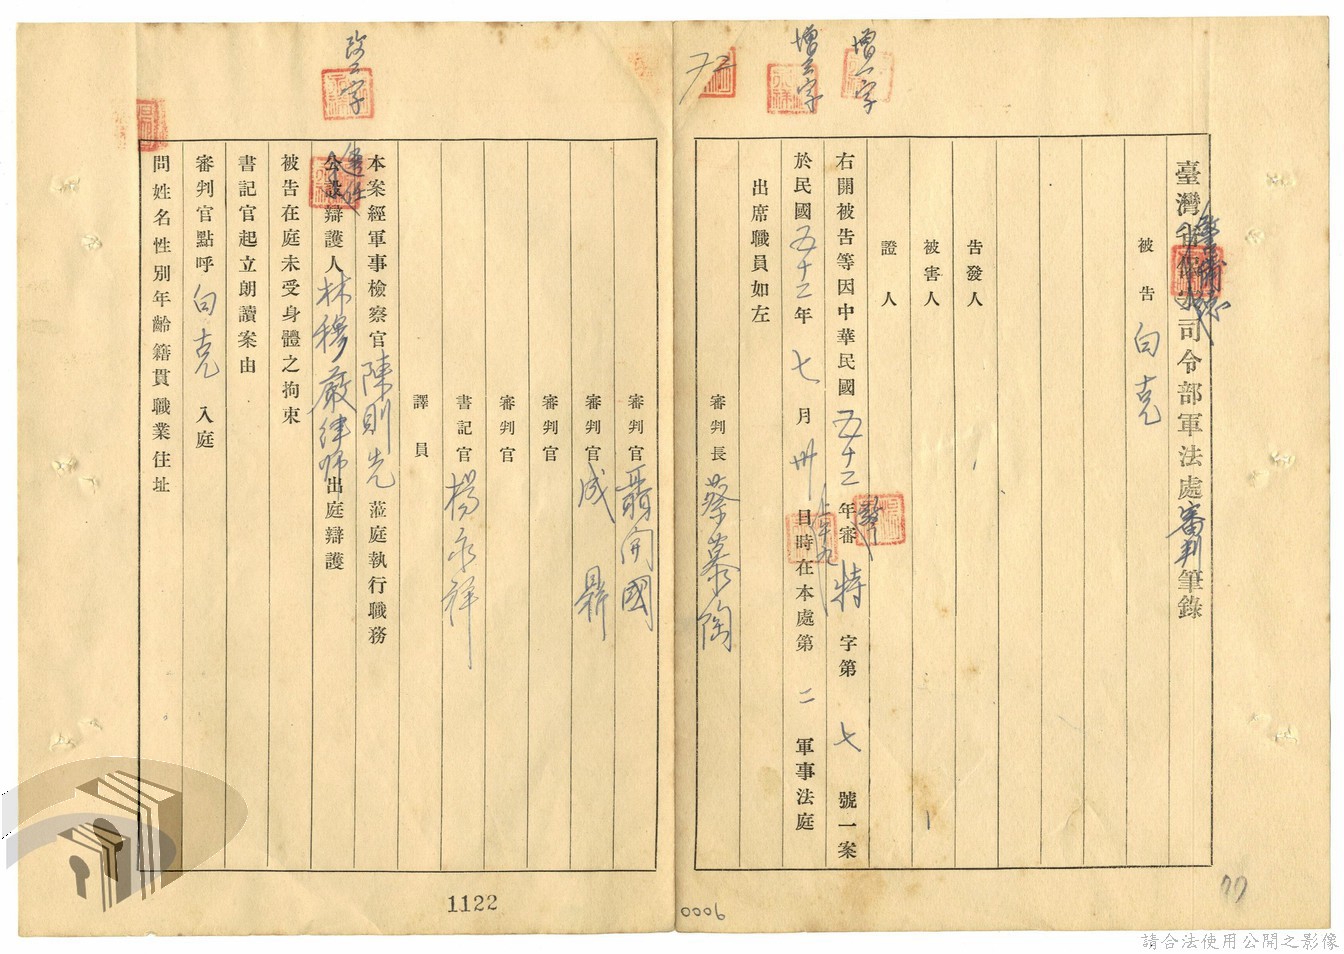 臺灣警備總司令部軍法處審判筆錄
被告 白克
告發人
被害人
證人
右開被告等因中華民國五十二年審特字第七號一案
於民國五十二年七月卅日上午九時在本處第二軍事法庭
出席職員如左
審判長 蔡慕陶
審判官 聶開國
審判官 成鼎
審判官
審判官
書記官 楊永祥
譯員
本案經軍事檢察官陳則先蒞庭執行職務
選任辯護人林穆嚴律師出庭辯護
被告在庭未受身體之拘束
書記官起立朗讀案由
審判官點呼白克入庭
問姓名性別年齡籍貫職業住址
增一字
增三字
改二字
1122
0006
請合法使用公開之影像